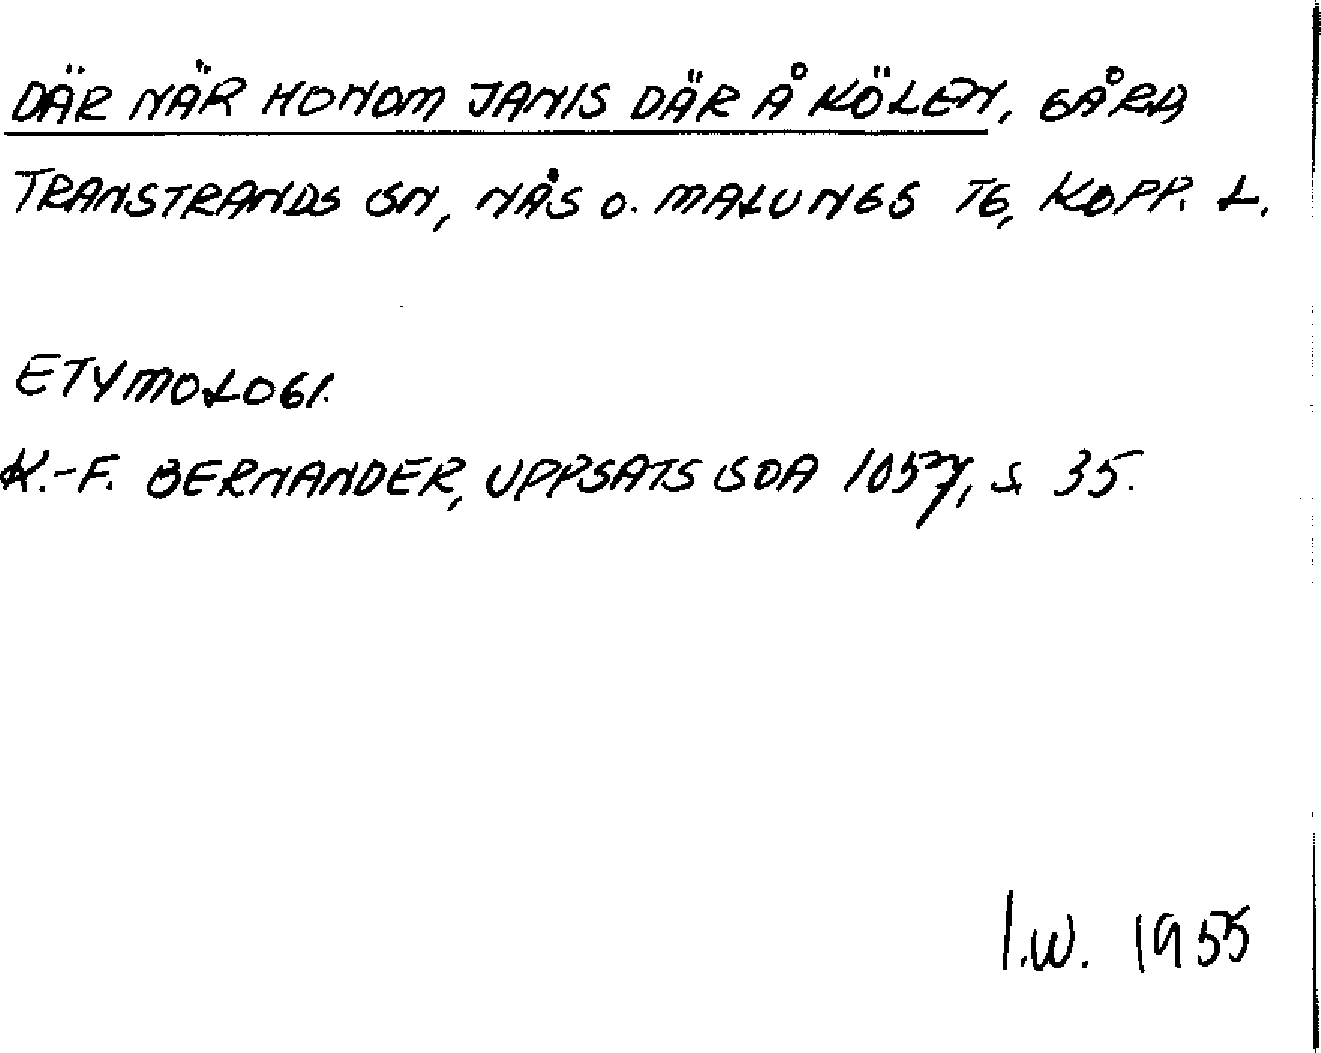 DÄR NÄR HONOM JANIS DÄR Å KÖLEN, GÅRD,
TRANSTRANDS SN, NÅS O. MALUNGS TG, KOPP. L.
ETYMOLOGI.
K.-F. BERNANDER, UPPSATS SOA 1057, S. 35.
I.W. 1955